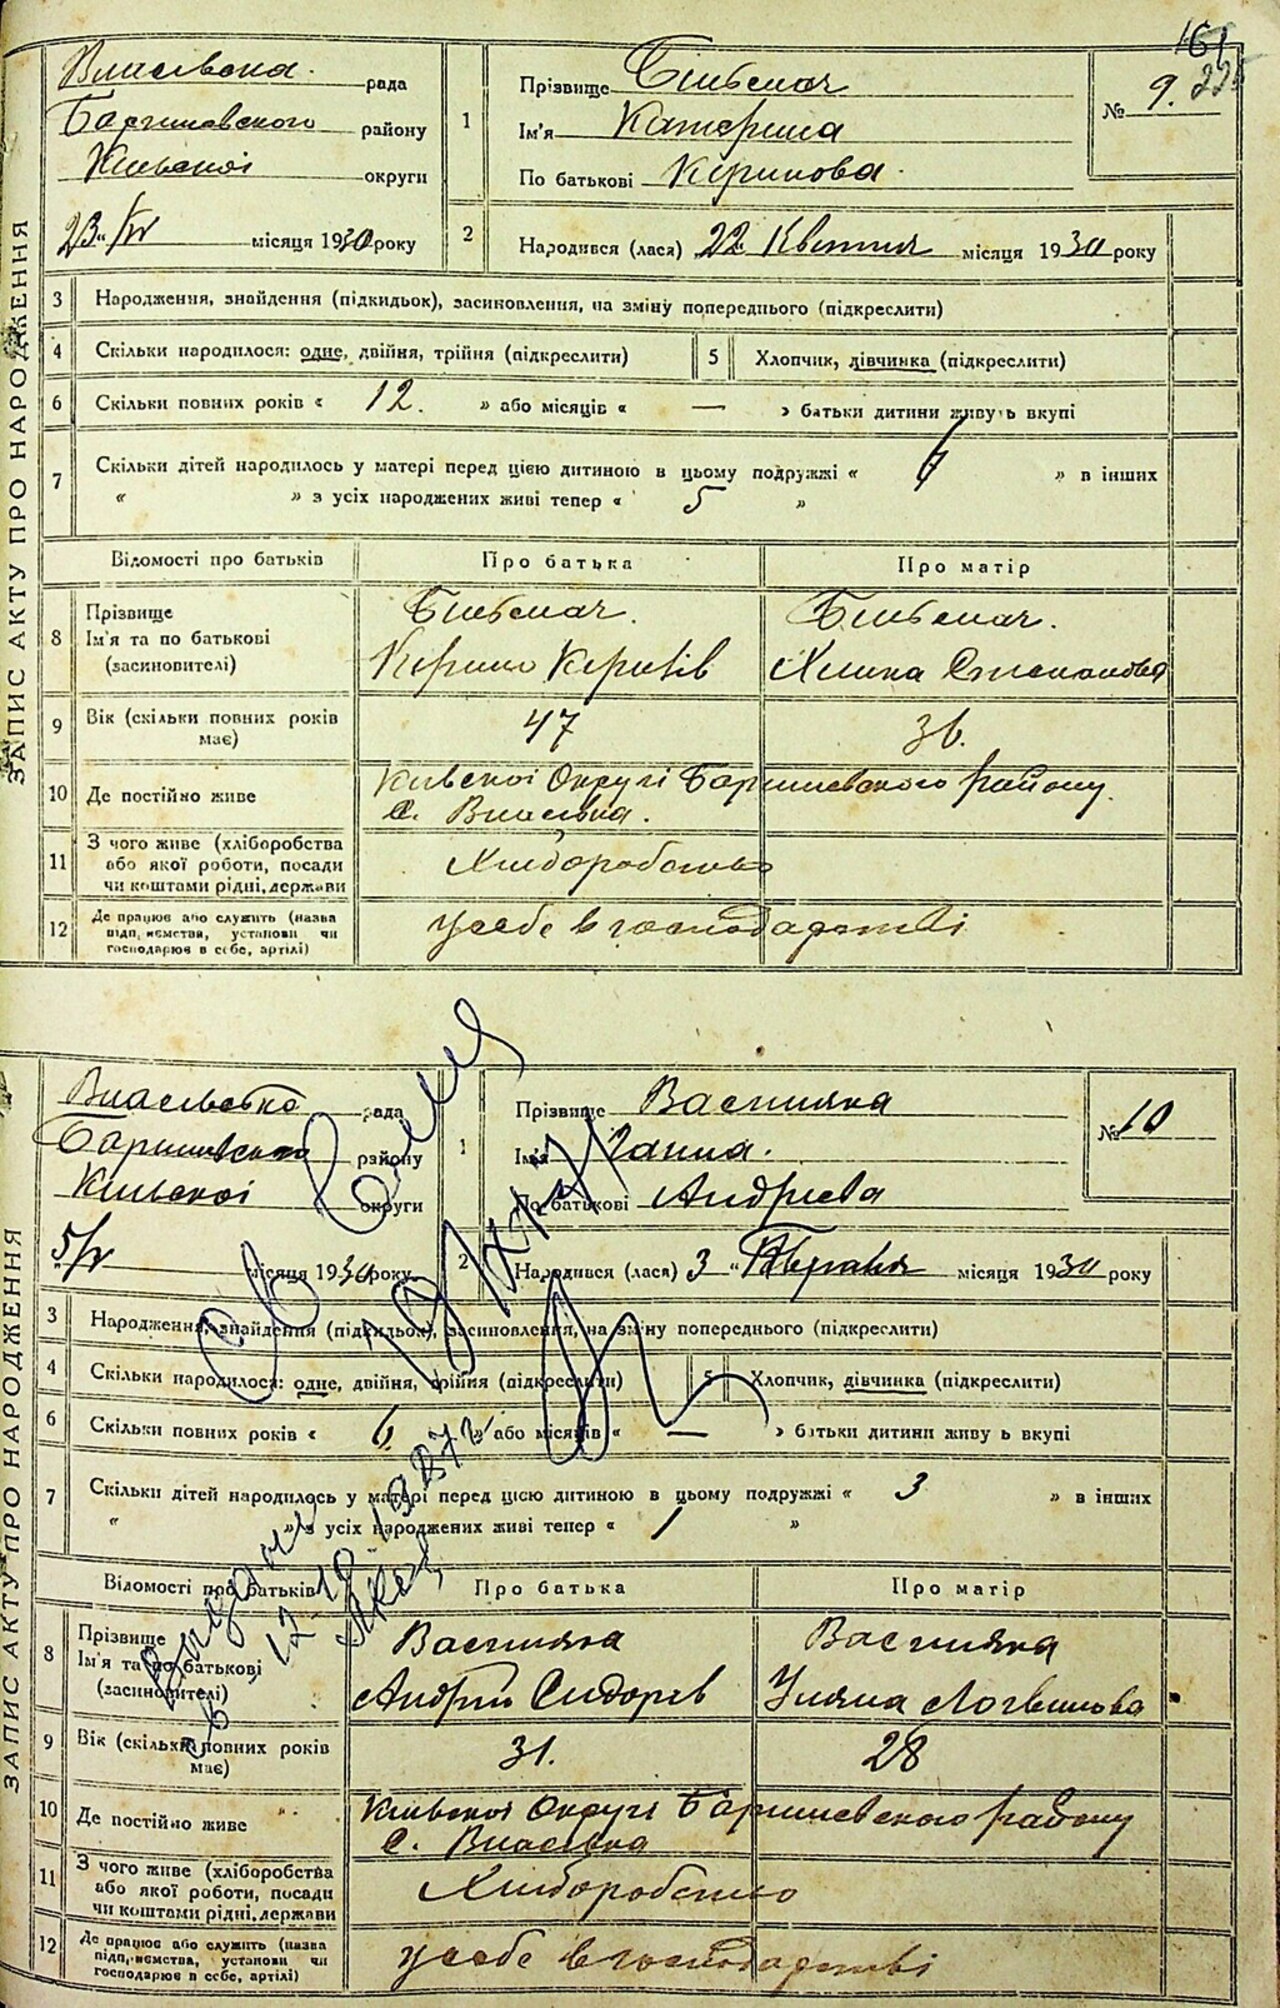 161
225
ЗАПИС АКТУ ПРО НАРОДЖЕННЯ
Власівска рада
Баришевского району
Київскоі округи
23 "/IV місяця 1930 року
1
Прізвище Більмач
Ім'я Катерина
По батькові Кирилова
№ 9.
2
Народився (лася) 22 Квітня місяця 1930 року
3 Народження, знайдення (підкидьок), засиновлення, на зміну попереднього (підкреслити)
4 Скільки народилося: одне, двійня, трійня (підкреслити)
5 Хлопчик, дівчинка (підкреслити)
6 Скільки повних років « 12. » або місяців « — » батьки дитини живуть вкупі
7 Скільки дітей народилось у матері перед цією дитиною в цьому подружжі « » в інших
« » з усіх народжених живі тепер « 5 »
Відомості про батьків Про батька Про матір
8 Прізвище
Ім'я та по батькові
(засиновителі)
Кирило
Степанова
9 Вік (скільки повних років має) 47 36.
10 Де постійно живе Київскоі Округі Баришевского району
с. Власівка.
11 З чого живе (хліборобства або якої роботи, посади чи коштами рідні, держави Хліборобство
12 Де працює або служить (назва підприємства, установи чи господарює в себе, артілі) у себе в господарстві
ЗАПИС АКТУ ПРО НАРОДЖЕННЯ
Власівско рада
Баришевского району
Київскоі округи
5/V місяця 1930 року
1
Прізвище
Ім'я Ганна.
По батькові Андрієва
№ 10
2
Народився (лася) 3 " місяця 1930 року
3 Народження, знайдення (підкидьок), засиновлення, на зміну попереднього (підкреслити)
4 Скільки народилося: одне, двійня, трійня (підкреслити)
5 Хлопчик, дівчинка (підкреслити)
6 Скільки повних років « 6 » або місяців « — » батьки дитини живуть вкупі
7 Скільки дітей народилось у матері перед цією дитиною в цьому подружжі « 3 » в інших
« » з усіх народжених живі тепер « 1 »
Відомості про батьків Про батька Про матір
8 Прізвище
Ім'я та по батькові
(засиновителі)
Андрій Сидорів
Уляна Логвинова
9 Вік (скільки повних років має) 31. 28
10 Де постійно живе Київскоі Округі Баришевского району
с. Власівка
11 З чого живе (хліборобства або якої роботи, посади чи коштами рідні, держави Хліборобство
12 Де працює або служить (назва підприємства, установи чи господарює в себе, артілі) у себе в господарстві